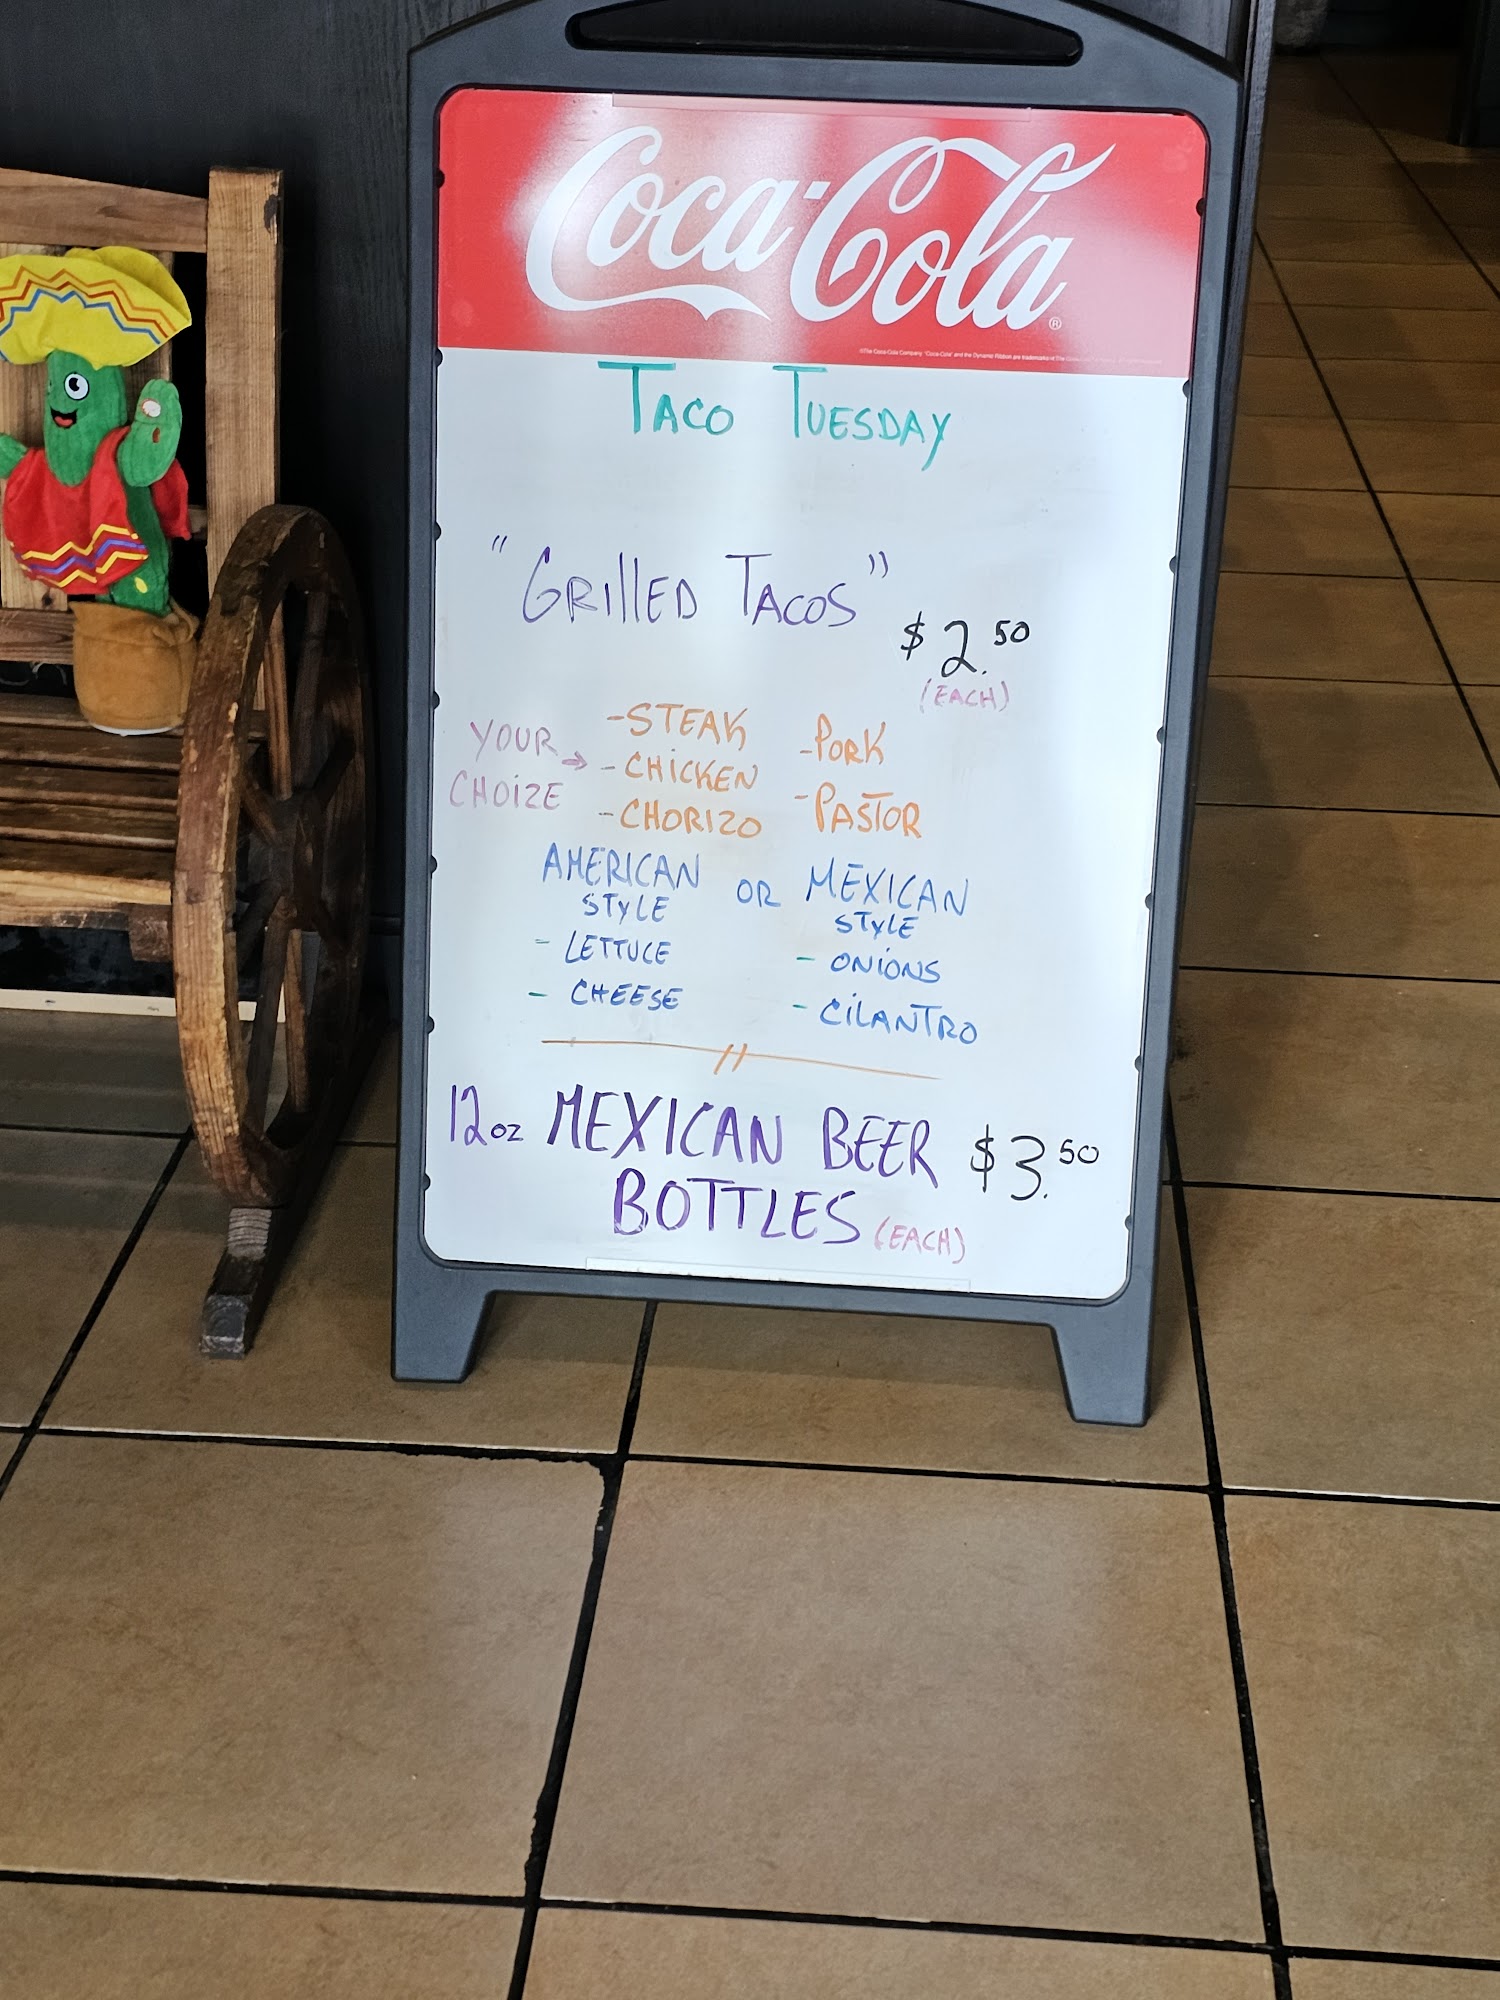 Coca-Cola
TACO TUESDAY
"GRILLED TACOS"
$2.50
(EACH)
YOUR CHOIZE →
-STEAK
-CHICKEN
-CHORIZO
-PORK
-PASTOR
AMERICAN STYLE
- LETTUCE
- CHEESE
OR
MEXICAN STYLE
- ONIONS
- CILANTRO
12oz MEXICAN BEER $3.50
BOTTLES (EACH)